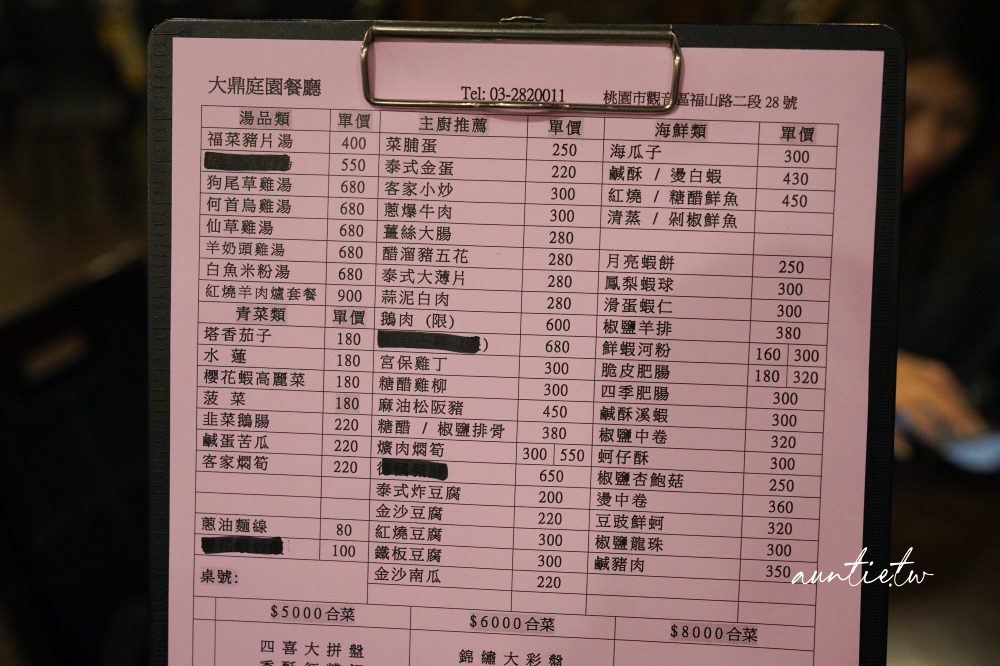 大鼎庭園餐廳 Tel: 03-2820011 桃園市觀音區福山路二段 28 號
湯品類 單價 主廚推薦 單價 海鮮類 單價
福菜豬片湯 400 菜脯蛋 250 海瓜子 300
550 泰式金蛋 220 鹹酥 / 燙白蝦 430
狗尾草雞湯 680 客家小炒 300 紅燒 / 糖醋鮮魚 450
何首烏雞湯 680 蔥爆牛肉 300 清蒸 / 剁椒鮮魚
仙草雞湯 680 薑絲大腸 280
羊奶頭雞湯 680 醋溜豬五花 280 月亮蝦餅 250
白魚米粉湯 680 泰式大薄片 280 鳳梨蝦球 300
紅燒羊肉爐套餐 900 蒜泥白肉 280 滑蛋蝦仁 300
青菜類 單價 鵝肉 (限) 600 椒鹽羊排 380
塔香茄子 180 ) 680 鮮蝦河粉 160 300
水 蓮 180 宮保雞丁 300 脆皮肥腸 180 320
櫻花蝦高麗菜 180 糖醋雞柳 300 四季肥腸 300
菠 菜 180 麻油松阪豬 450 鹹酥溪蝦 300
韭菜鵝腸 220 糖醋 / 椒鹽排骨 380 椒鹽中卷 320
鹹蛋苦瓜 220 爌肉燜筍 300 550 蚵仔酥 300
客家燜筍 220 650 椒鹽杏鮑菇 250
泰式炸豆腐 200 燙中卷 360
金沙豆腐 220 豆豉鮮蚵 320
蔥油麵線 80 紅燒豆腐 300 椒鹽龍珠 300
100 鐵板豆腐 300 鹹豬肉 350
桌號: 金沙南瓜 220
$5000合菜 $6000合菜 $8000合菜
四喜大拼盤 錦繡大彩盤
auntie.tw